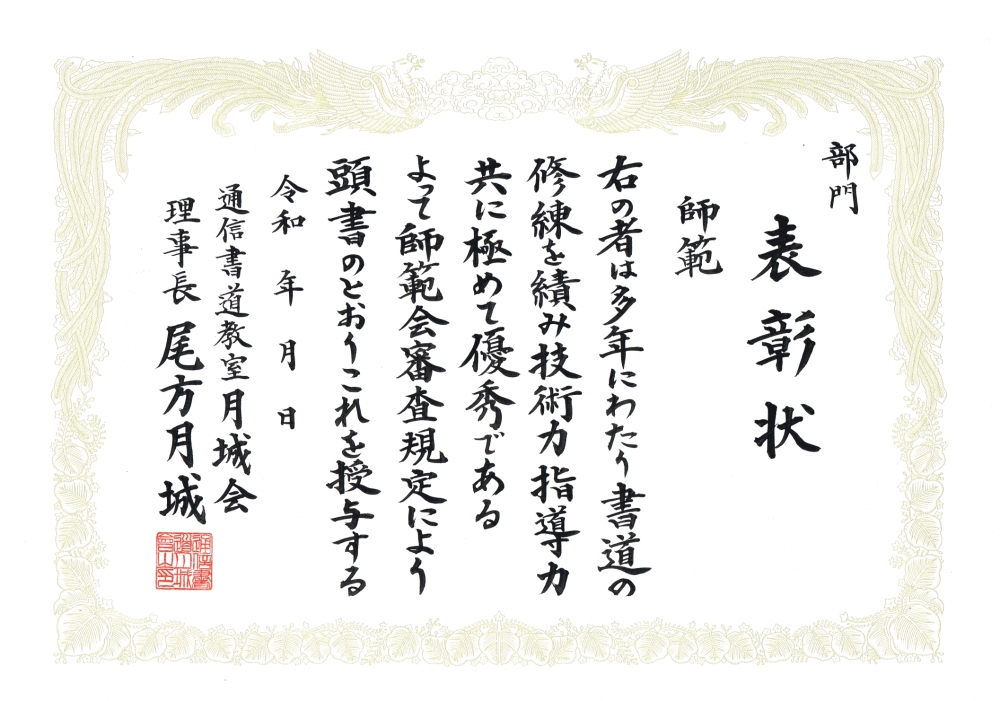 部門
表彰状
師範
右の者は多年にわたり書道の
修練を績み技術力指導力
共に極めて優秀である
よって師範会審査規定により
頭書のとおりこれを授与する
令和 年 月 日
通信書道教室月城会
理事長 尾方月城